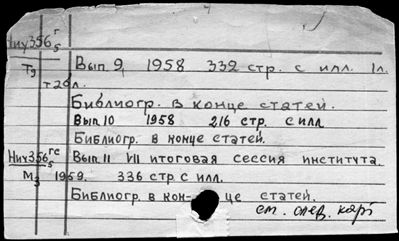 Нич356г5
Т9 Вып 9, 1958 332 стр. с илл. 1л.
т20л.
Библиогр. в конце статей.
Вып 10 1958 216 стр. с илл
Библиогр. в конце статей.
Нич356гс5 Вып 11 VII итоговая сессия института.
М3 1959. 336 стр с илл.
Библиогр. в кон- це статей.
см. след. карт